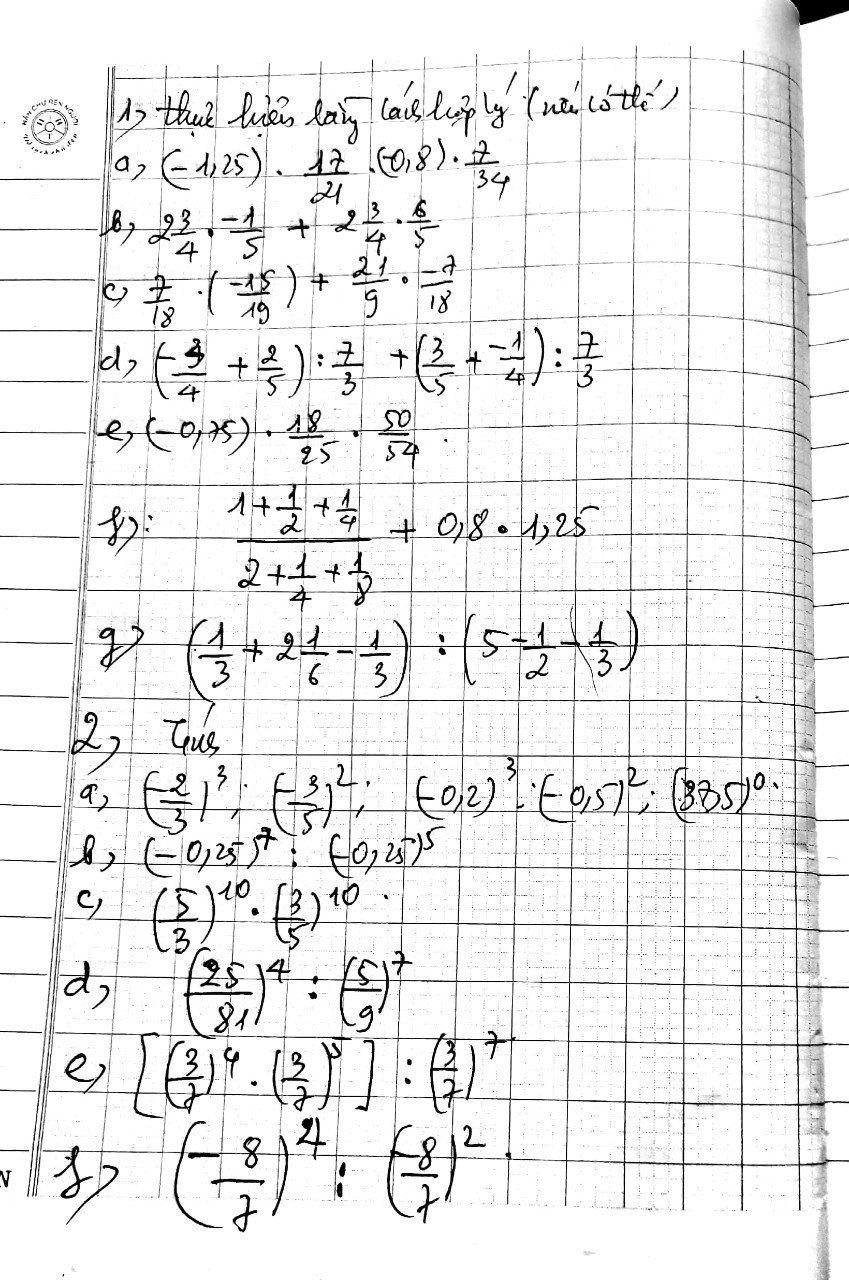 1, thực hiện bằng cách hợp lý (nếu có thể)
a, (-1,25) . 17/21 . (-0,8) . 7/34
b, 2 3/4 . -1/5 + 2 3/4 . 6/5
c, 7/18 . (-15/19) + 21/9 . -7/18
d, (-3/4 + 2/5) : 7/3 + (3/5 + -1/4) : 7/3
e, (-0,75) . 18/25 . 50/54
f): (1 + 1/2 + 1/4)/(2 + 1/4 + 1/8) + 0,8 . 1,25
g) (1/3 + 2 1/6 - 1/3) : (5 - 1/2 - 1/3)
2, Tính
a, (-2/3)^3; (-3/5)^2; (-0,2)^3; (-0,5)^2; (37,5)^0.
b, (-0,25)^7 : (-0,25)^5
c, (5/3)^10 . (3/5)^10.
d, (25/81)^4 : (5/9)^7
e, [(3/7)^4 . (3/7)^5] : (3/7)^7
f) (-8/7)^4 : (-8/7)^2.
N